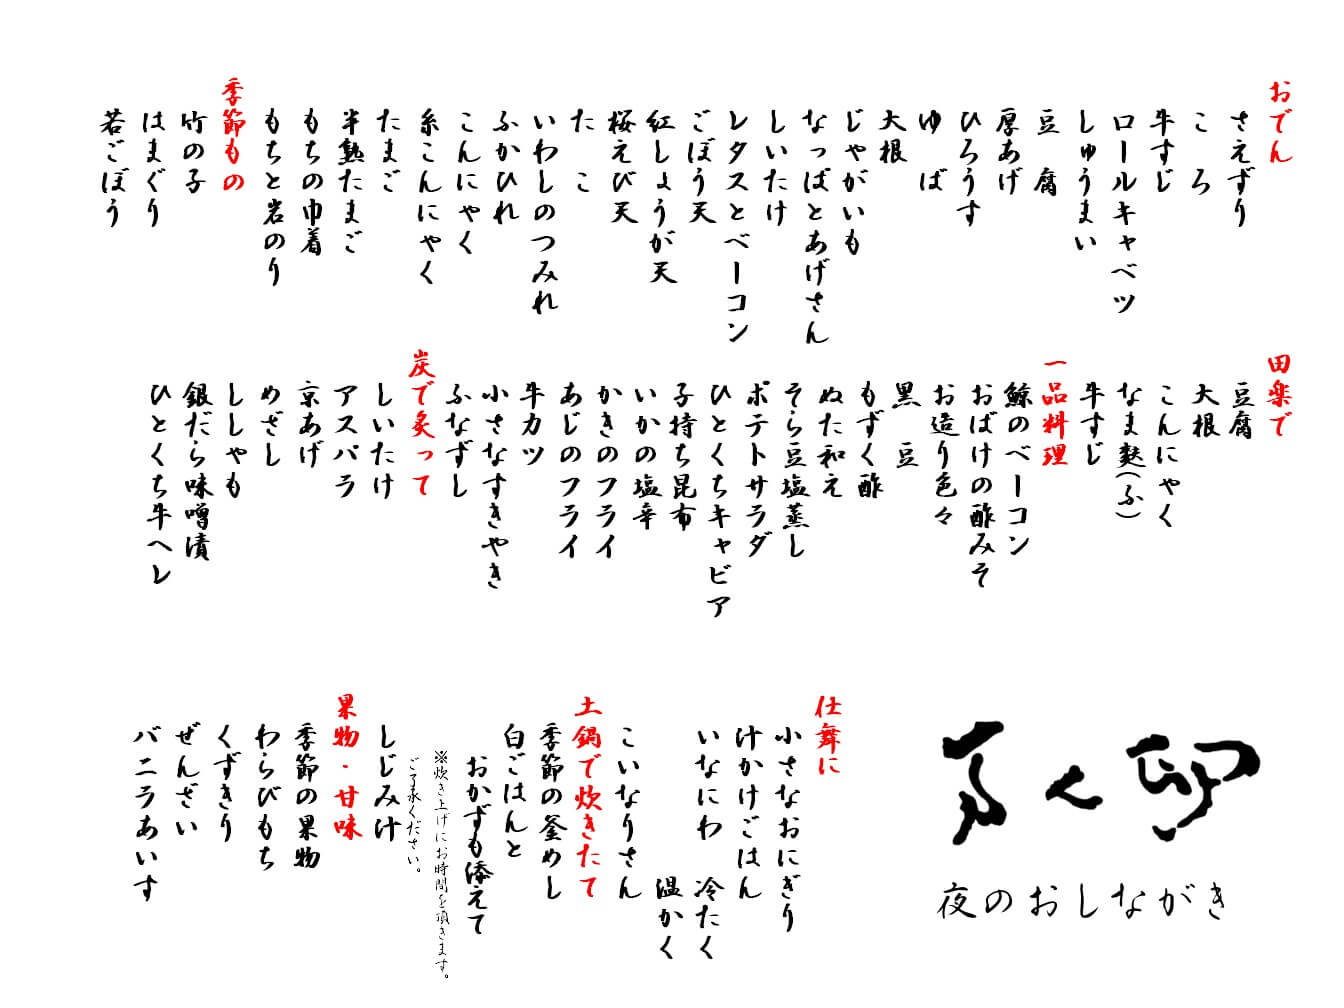 おでん
さえずり
ころ
牛すじ
ロールキャベツ
しゅうまい
豆腐
厚あげ
ひろうす
ゆば
大根
じゃがいも
なっぱとあげさん
しいたけ
レタスとベーコン
ごぼう天
紅しょうが天
桜えび天
たこ
いわしのつみれ
ふかひれ
こんにゃく
糸こんにゃく
たまご
半熟たまご
もちの巾着
もちと岩のり
季節もの
竹の子
はまぐり
若ごぼう
田楽で
豆腐
大根
こんにゃく
なま麸(ふ)
牛すじ
一品料理
鯨のベーコン
おばけの酢みそ
お造り色々
黒豆
もずく酢
ぬた和え
そら豆塩蒸し
ポテトサラダ
ひとくちキャビア
子持ち昆布
いかの塩辛
かきのフライ
あじのフライ
牛カツ
小さなすきやき
ふなずし
炭で炙って
しいたけ
アスパラ
京あげ
めざし
ししゃも
銀だら味噌漬
ひとくち牛ヘレ
仕舞に
小さなおにぎり
汁かけごはん
いなにわ 冷たく
温かく
こいなりさん
土鍋で炊きたて
季節の釜めし
白ごはんと
おかずも添えて
※炊き上げにお時間を頂きます。
ご了承ください。
しじみ汁
果物・甘味
季節の果物
わらびもち
くずきり
ぜんざい
バニラあいす
夜のおしながき